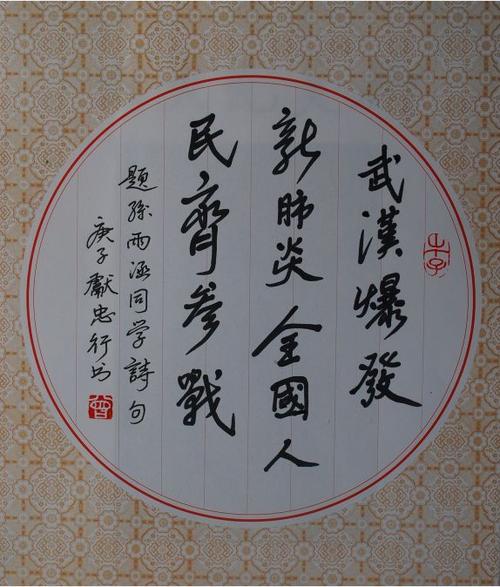 武漢爆發
新肺炎全國人
民齊參戰
題孫雨涵同学詩句
庚子獻忠行书